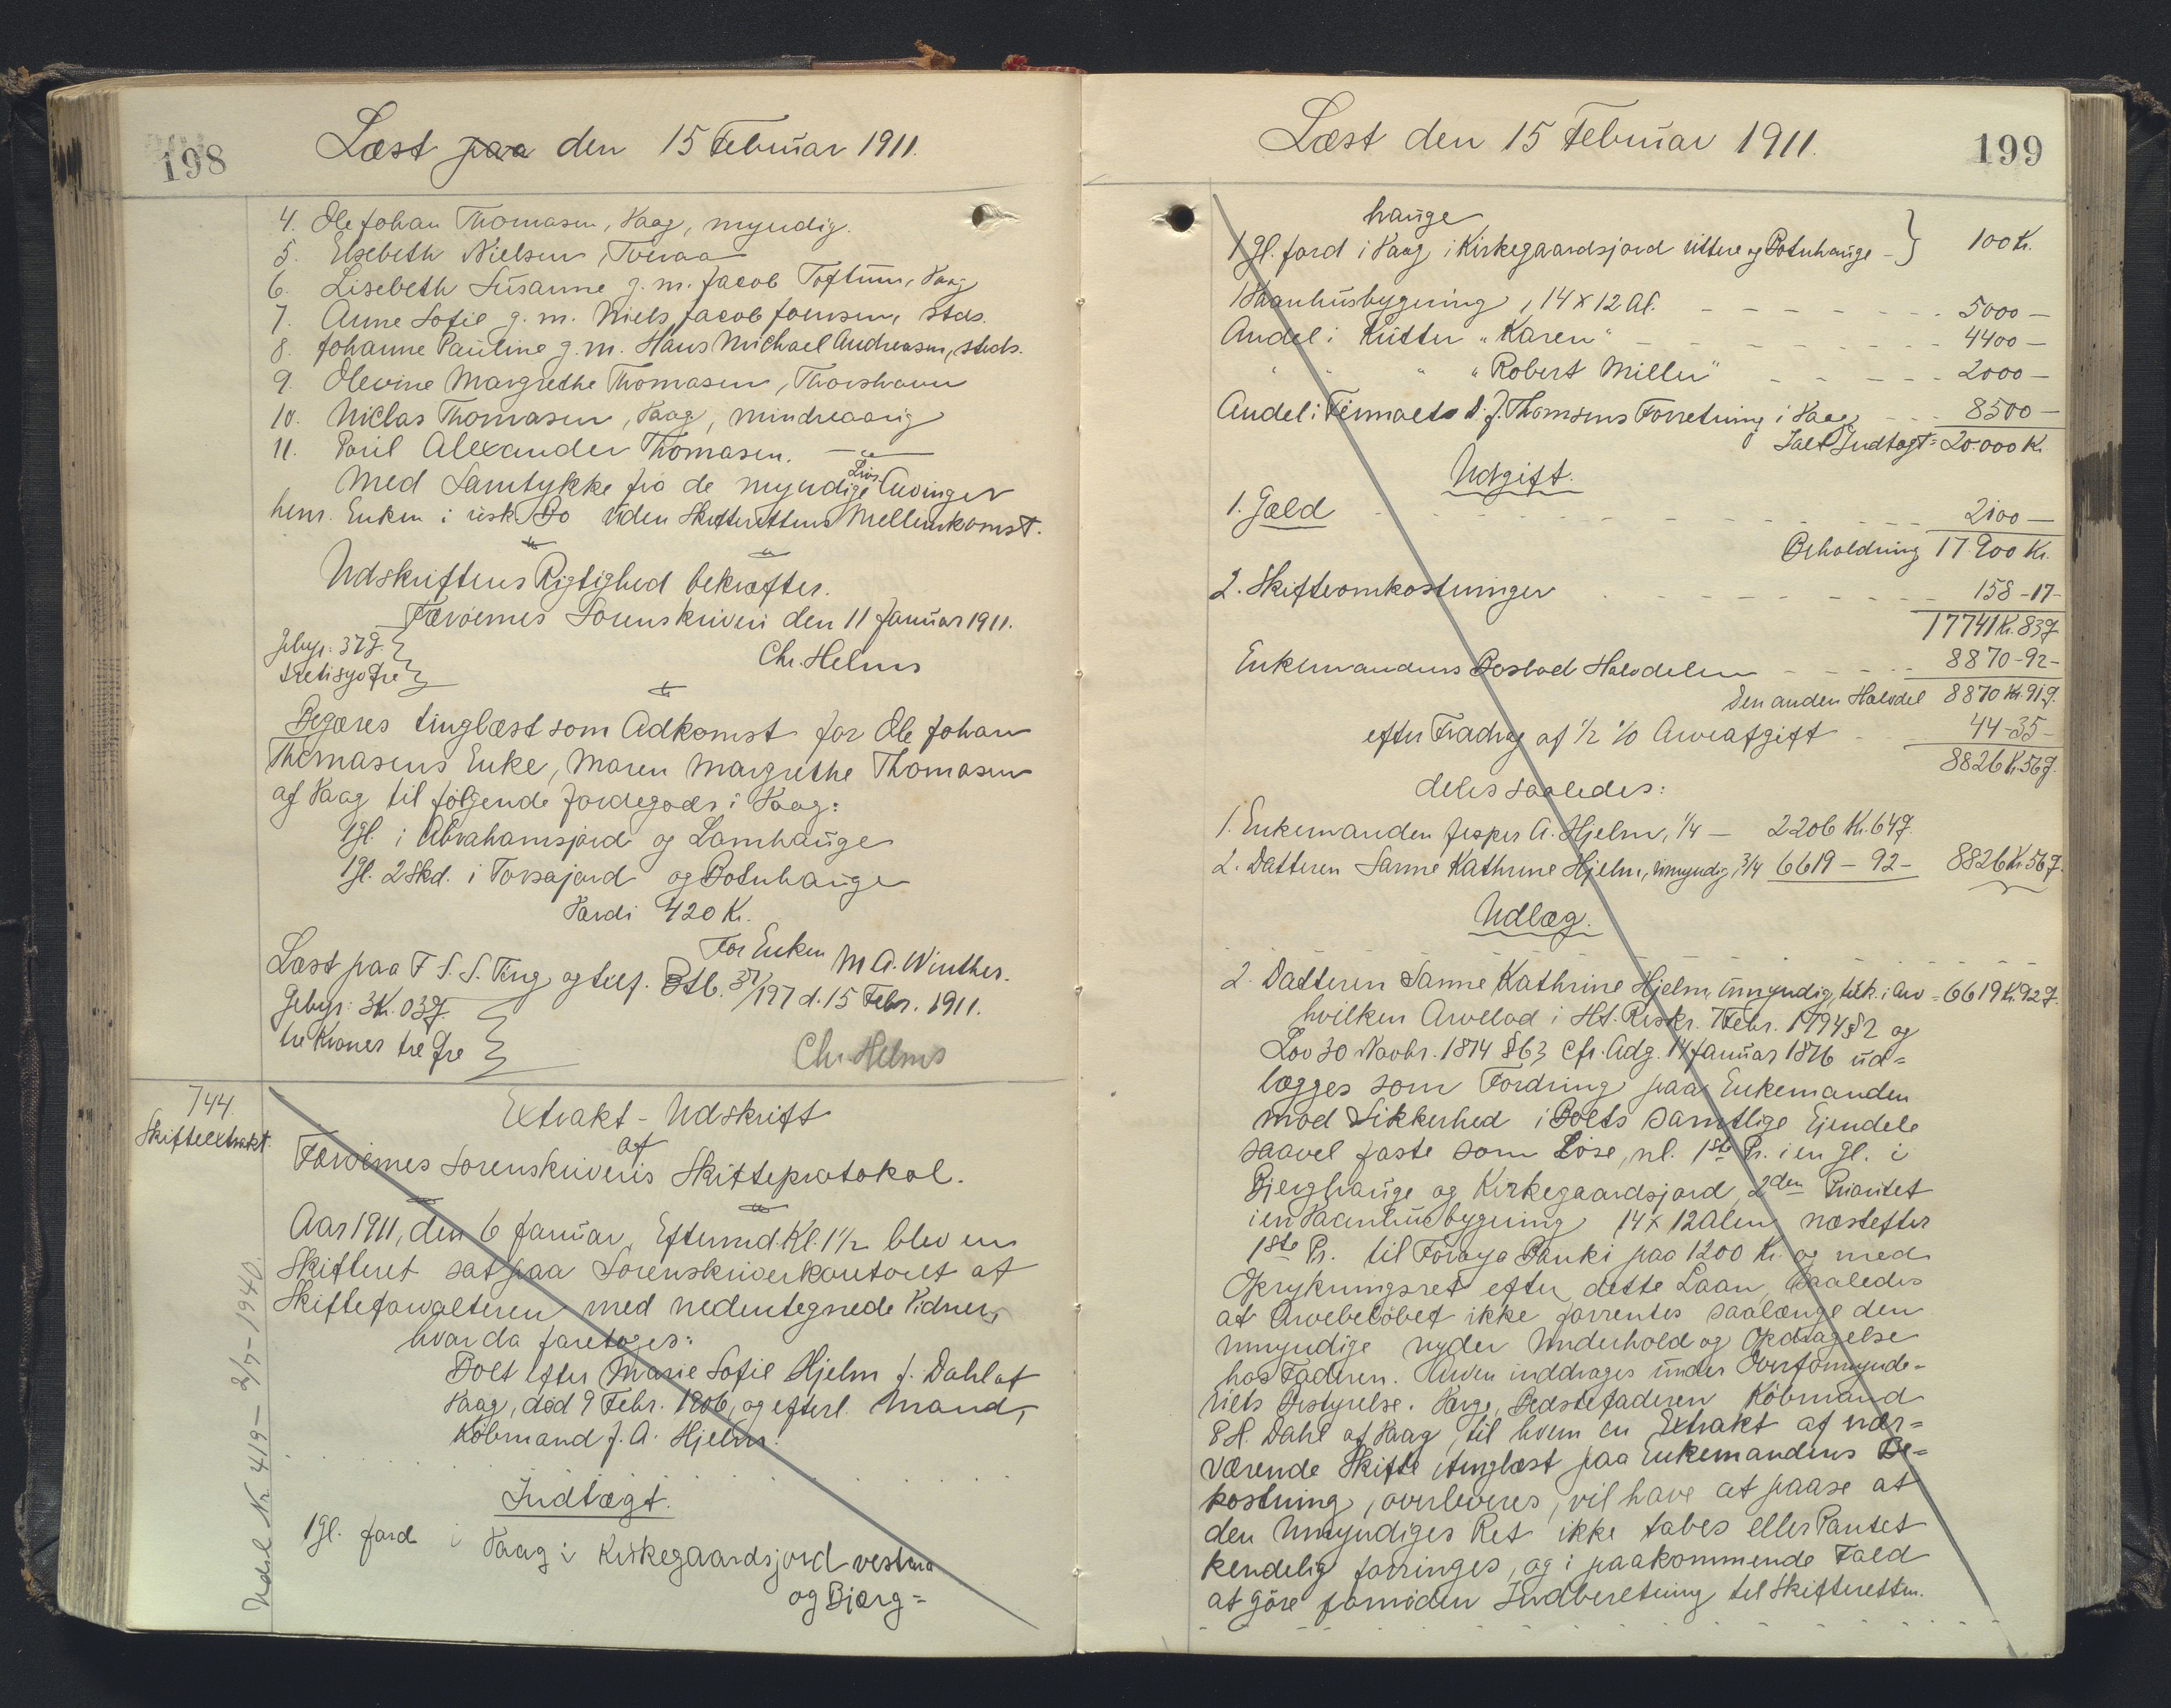 198
Læst paa den 15 Februar 1911.
4. Ole Johan Thomasen, Vaag, myndig.
5. Elsebeth Nielsen, Tveraa
6. Lisebeth Susanne g. m. Jacob Toftum, Vaag
7. Anne Sofie g. m. Niels Jacob Joensen, stds.
8. Johanne Pauline g. m. Hans Michael Andreasen, stds.
9. Olevine Margrethe Thomasen, Thorshavn
10. Niclas Thomasen, Vaag, mindreaarig
11. Poul Alexander Thomasen. —"—
Med Samtykke fra de myndige Livs Arvinger
hens. Enken i uisk. Bo uden Skifterettens Mellemkomst.
Udskriftens Rigtighed bekræfter.
Færøernes Sorenskriveri den 11 Januar 1911.
Gebyr. 37 Ø.
tretisyv Øre
Chr. Helms
Begæres tinglæst som Adkomst for Ole Johan
Thomasens Enke, Maren Margrethe Thomasen
af Vaag til følgende Jordegods i Vaag:
1 Gl. i Abrahamsjord og Lamhauge
1 Gl. 2 Skd. i Torsajord og Botnhauge
Værdi 420 Kr.
For Enken M A. Winther.
Læst paa F S. S. Ting og tilf. Btb. 31/197 d. 15 Febr. 1911.
Gebyr: 3 Kr. 03 Ø.
tre Kroner tre Øre
Chr. Helms
744.
Skifteextrakt.
Extrakt - Udskrift
af
Færøernes Sorenskriveris Skifteprotokol.
Aar 1911, den 6 Januar, Eftermd. Kl. 1½ blev en
Skifteret sat paa Sorenskriverkontoret af
Skifteforvalteren med nedentegnede Vidner,
hvor da foretoges:
Boet efter Marie Sofie Hjelm f. Dahl af
Vaag, død 9 Febr. 1906, og efterl. Mand,
Købmand J. A. Hjelm.
Indtægt.
1 Gl. Jord i Vaag i Kirkegaardsjord vestara
og Bjærg=
Udsl. Nr. 419 - 2/7 - 1940.
Læst den 15 Februar 1911.
199
hauge
1 Gl. Jord i Vaag i Kirkegaardsjord uttere og Botnhauge - } 100 Kr.
1 Vaanhusbygning, 14 x 12 Al. 5000 —
Andel i Kutter "Karen" 4400 —
" " " "Robert Miller" 2000 —
Andel i Firmaets D. J. Thomsens Forretning i Vaag 8500 —
Ialt Indtægt = 20.000 Kr.
Udgift.
1. Gæld 2100 —
Beholdning 17.900 Kr.
2. Skifteomkostninger 158 - 17 -
17741 Kr. 83 Ø.
Enkemandens Boslod Halvdelen 8870 - 92 -
Den anden Halvdel 8870 Kr. 91 Ø.
efter Fradrag af ½ % Arveafgift 44 - 35 -
8826 Kr. 56 Ø.
deles saaledes:
1. Enkemanden Jesper A. Hjelm, ¼ — 2206 Kr. 64 Ø.
2. Datteren Sanne Kathrine Hjelm, umyndig, ¾ 6619 - 92 - 8826 Kr. 56 Ø.
Udlæg.
2. Datteren Sanne Kathrine Hjelm, umyndig, tilk. i Arv = 6619 Kr. 92 Ø.
hvilken Arvelod i Ht. Reskr. 7 Febr. 1794 § 2 og
Lov 30 Novbr. 1874 § 63 cfr. Adg. 14 Januar 1876 ud=
lægges som Fordring paa Enkemanden
mod Sikkerhed i Boets samtlige Ejendele
saavel faste som Løse, nl. 1ste Pr. i en Gl. i
Bjerghauge og Kirkegaardsjord, 2den Prioritet
i en Vaanhusbygning 14 x 12 Alen næstefter
1ste Pr. til Føroya Banki paa 1200 Kr. og med
Oprykningsret efter dette Laan, saaledes
at Arvebeløbet ikke forrentes saalænge den
umyndige nyder Underhold og Opdragelse
hos Faderen. Arven inddrages under Overformynde=
riets Bestyrelse. Værge, Bedstefaderen Købmand
P H. Dahl af Vaag, til hvem en Extrakt af nær=
værende Skifte, tinglæst paa Enkemandens Be=
kostning, overleveres, vil have at paase at
den Umyndiges Ret ikke tabes eller Pantet
kendelig forringes, og i paakommende Fald
at gøre fornøden Indberetning til Skifteretten.